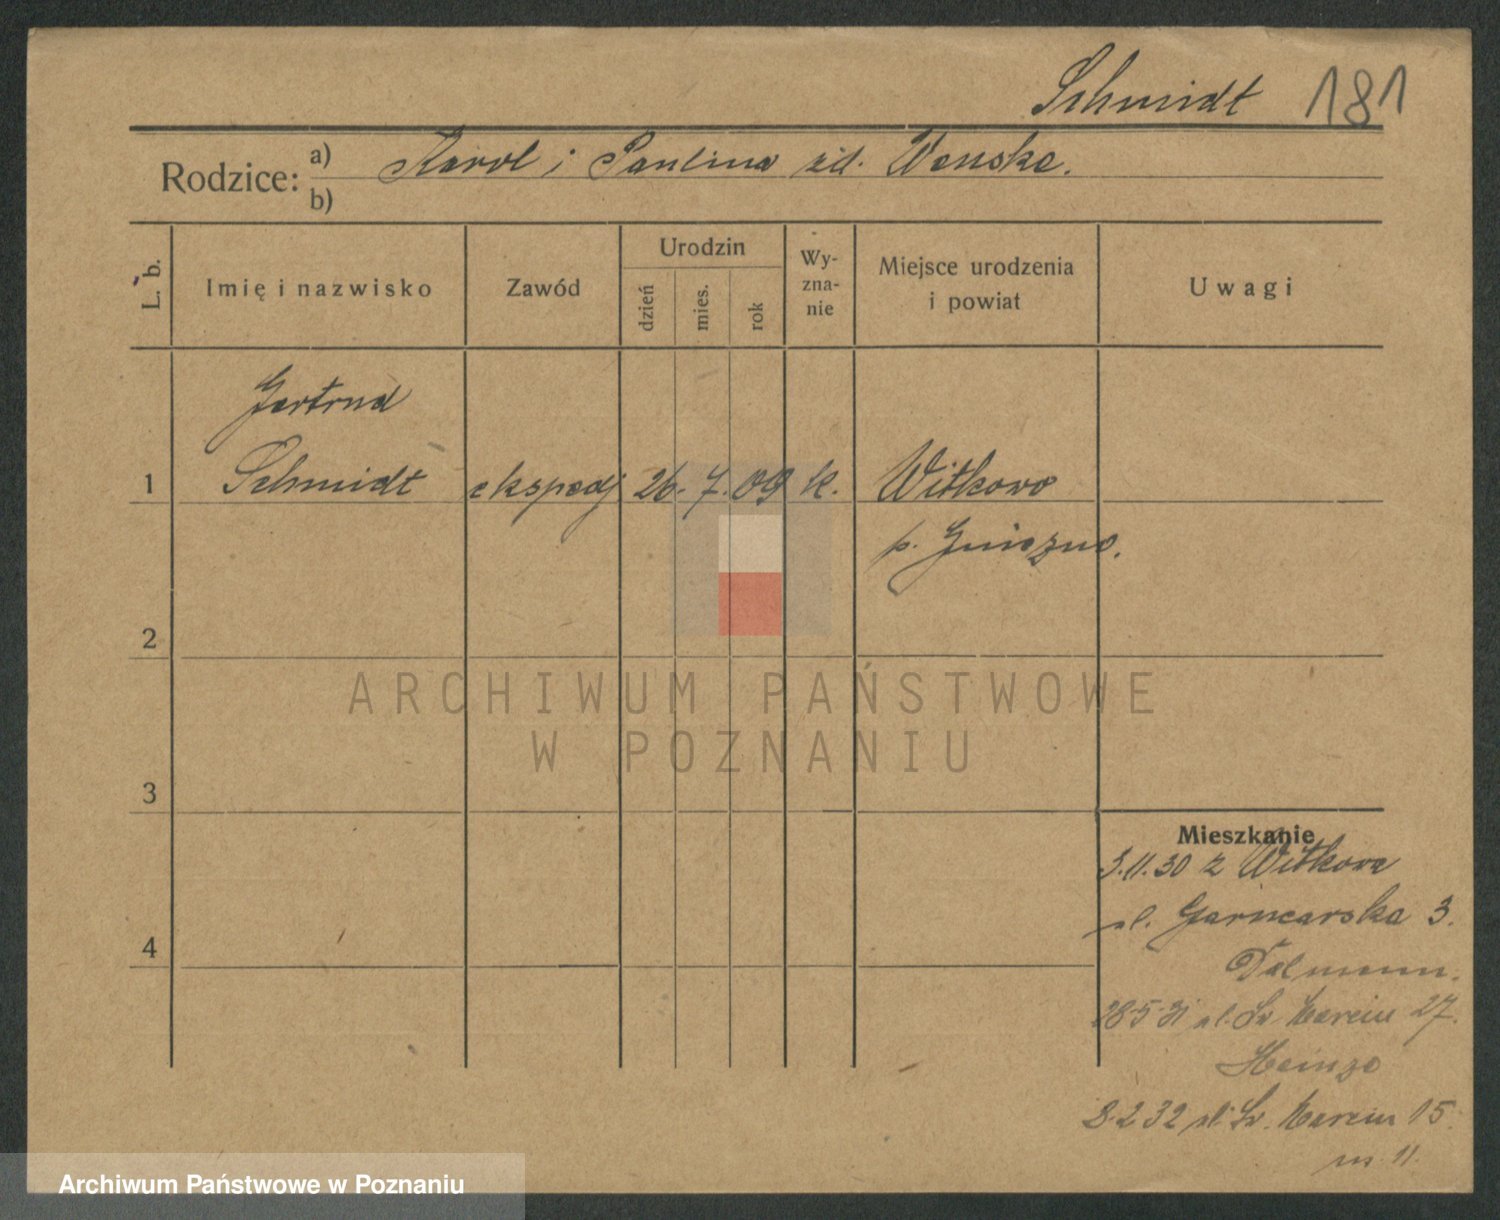 Schmidt 181
Rodzice: a) Karol i Paulina zd. Wenske.
b)
L. b.
Imię i nazwisko
Zawód
Urodzin
dzień
mies.
rok
Wy-
zna-
nie
Miejsce urodzenia
i powiat
Uwagi
Gertrud
1 Schmidt ekspedj 26. 7. 09 k. Witkowo
p. Gniezno.
2
ARCHIWUM PAŃSTWOWE
W POZNANIU
3
Mieszkanie
3.11.30 z Witkowa
ul. Garncarska 3.
4
28 5 31 ul. Św Marcin 27.
Heinze
8 2 32 ul. Św. Marcin 15.
m. 11.
Archiwum Państwowe w Poznaniu